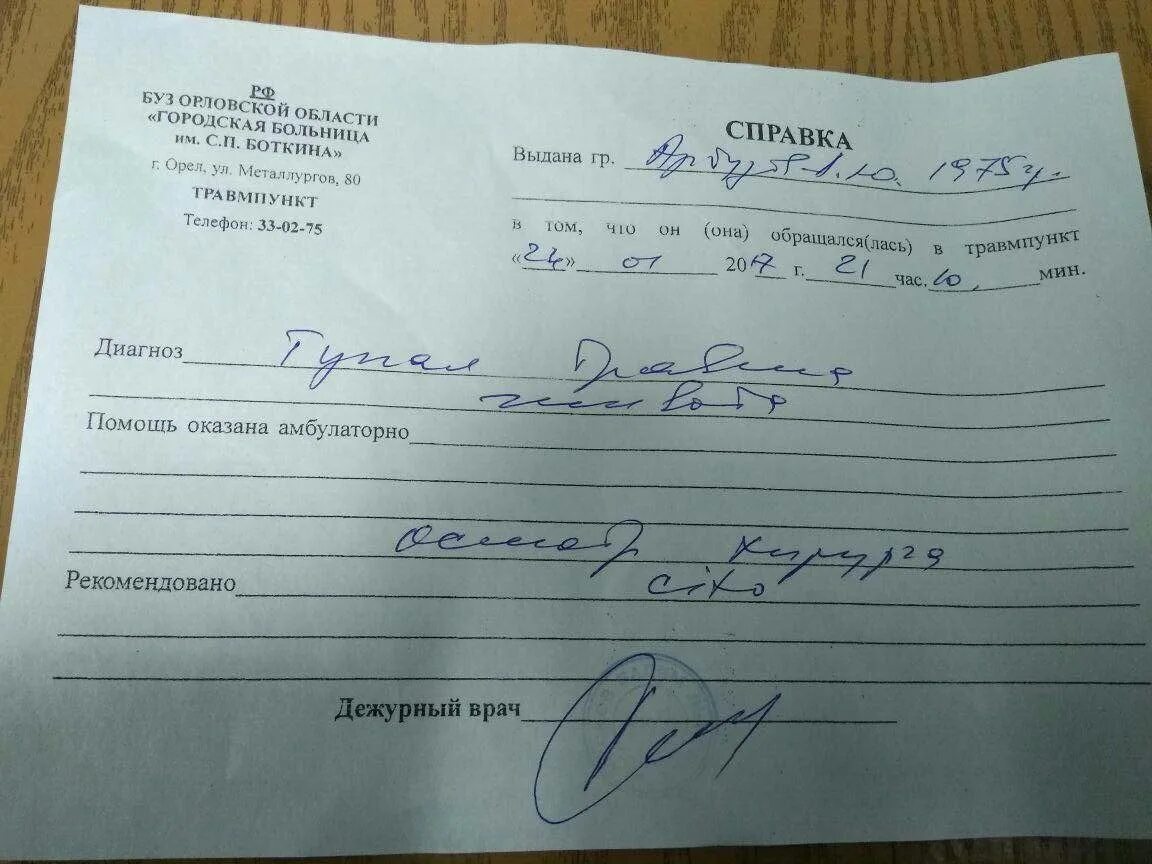 РФ
БУЗ ОРЛОВСКОЙ ОБЛАСТИ
«ГОРОДСКАЯ БОЛЬНИЦА
им. С.П. БОТКИНА»
г. Орел, ул. Металлургов, 80
ТРАВМПУНКТ
Телефон: 33-02-75
СПРАВКА
Выдана гр. А.Ю. 1975 г.
в том, что он (она) обращался(лась) в травмпункт
«24» 01 2017 г. 21 час. 10 мин.
Диагноз Тупая травма
живота
Помощь оказана амбулаторно
осмотр хирурга
Рекомендовано cito
Дежурный врач